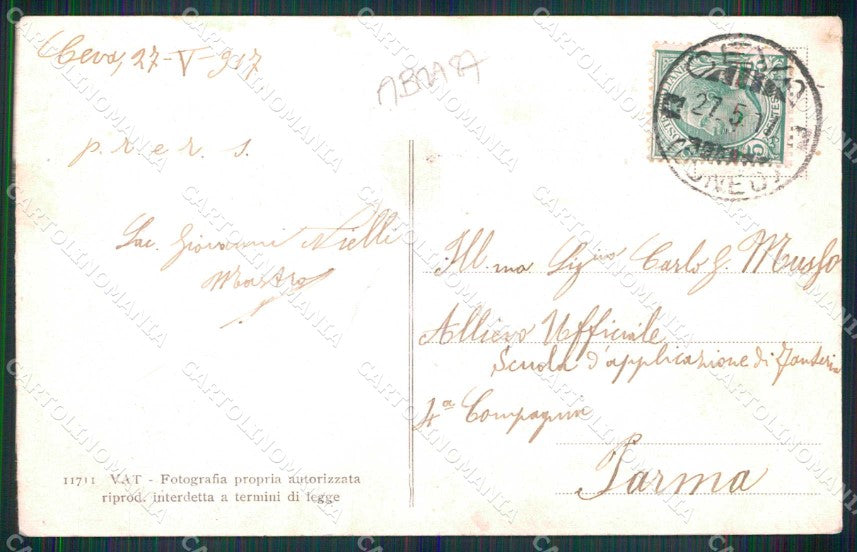 Ceva, 27-V-917
p. r. e r. s.
Sac. Giovanni Nielli
Maestro
CEVA
27.5
(CUNEO)
Ill.mo Sig.no Carlo G. Musso
Allievo Ufficiale
Scuola d'applicazione di Fanteria
4a Compagnia
Parma
11711 VAT - Fotografia propria autorizzata
riprod. interdetta a termini di legge
CARTOLINOMANIA